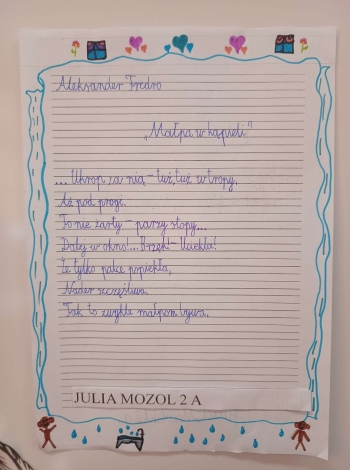 Aleksander Fredro
„Małpa w kąpieli"
... Ukrop za nią - tuż, tuż w tropy,
Aż pod progi.
To nie żarty - parzy stopy...
Dalej w okno!... Brzęk! - Uciekła!
Że tylko palce popiekła,
Nader szczęśliwa.
Tak to zwykle małpom bywa.
JULIA MOZOL 2 A